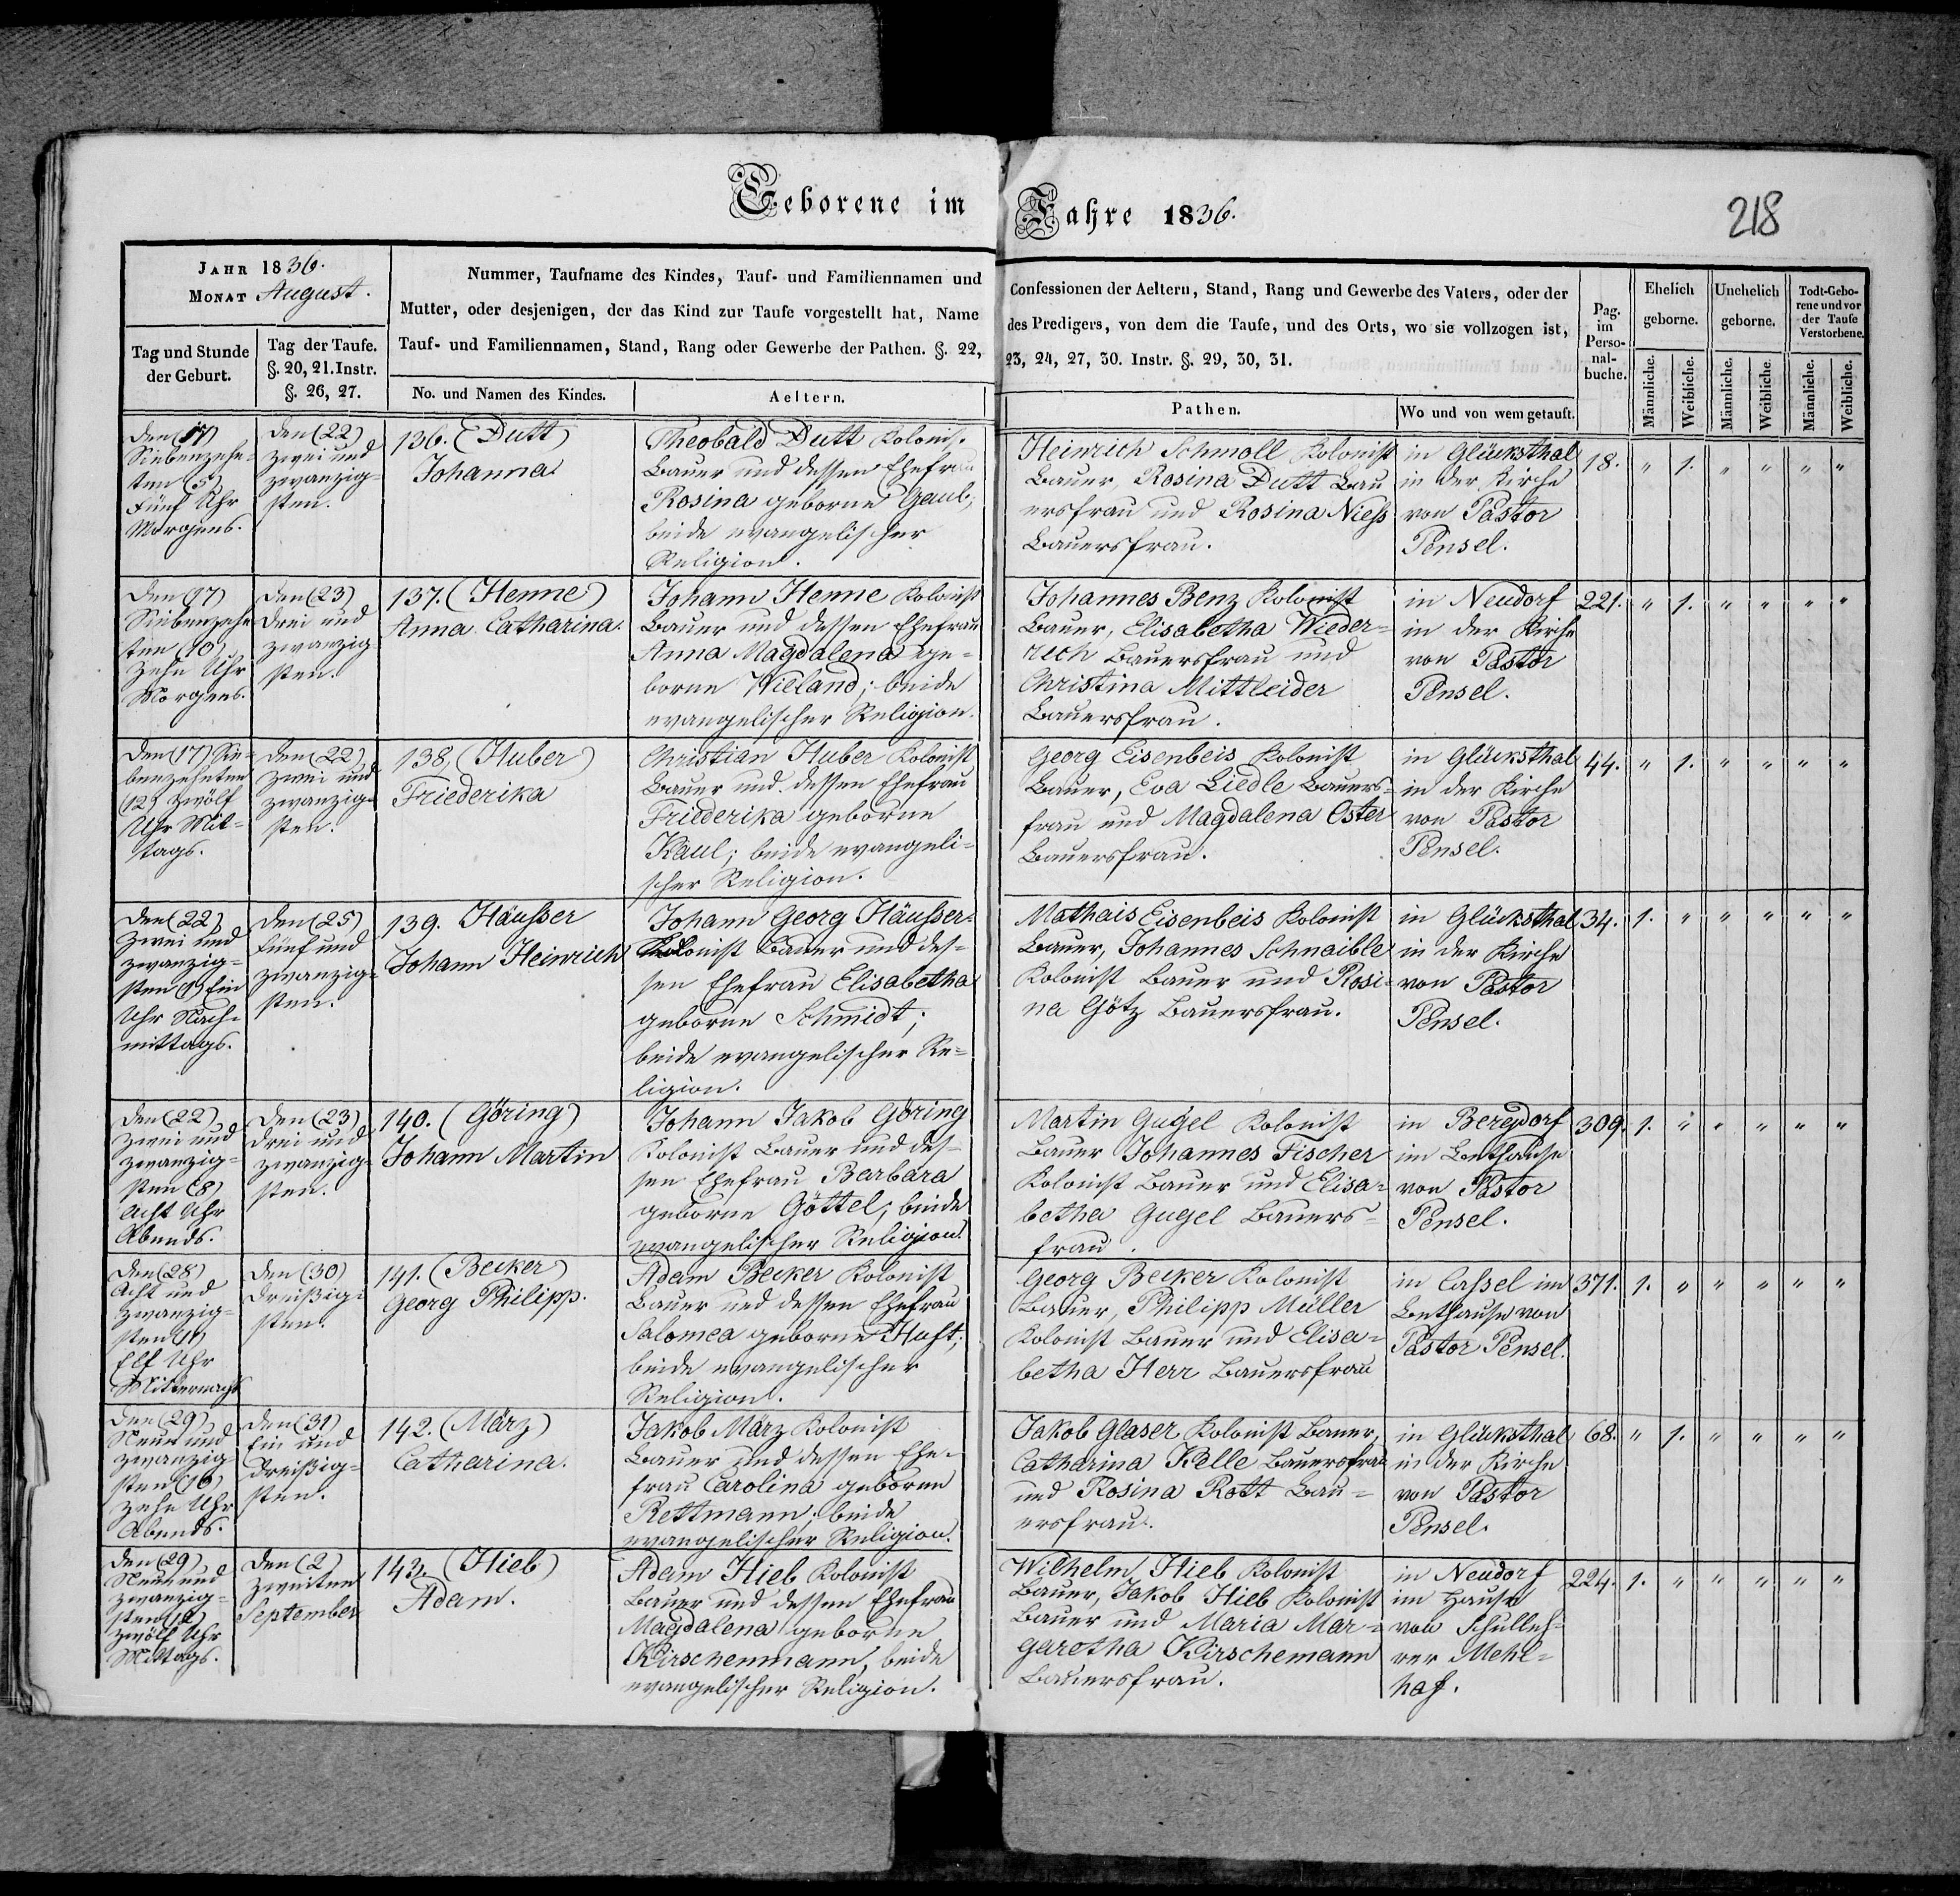 Geborene im Jahre 1836.
218
JAHR 1836.
MONAT August.
Tag und Stunde
der Geburt.
Tag der Taufe.
§. 20, 21. Instr.
§. 26, 27.
Nummer, Taufname des Kindes, Tauf- und Familiennamen und
Mutter, oder desjenigen, der das Kind zur Taufe vorgestellt hat, Name
Tauf- und Familiennamen, Stand, Rang oder Gewerbe der Pathen. §. 22,
No. und Namen des Kindes.
Aeltern.
Confessionen der Aeltern, Stand, Rang und Gewerbe des Vaters, oder der
des Predigers, von dem die Taufe, und des Orts, wo sie vollzogen ist,
23, 24, 27, 30. Instr. §. 29, 30, 31.
Pathen.
Wo und von wem getauft.
Pag.
im
Perso-
nal-
buche.
Ehelich
geborne.
Unehelich
geborne.
Todt-Gebo-
rene und vor
der Taufe
Verstorbene.
Männliche.
Weibliche.
Männliche.
Weibliche.
Männliche.
Weibliche.
Den (17)
Siebenzehn-
ten (5)
Fünf Uhr
Morgens.
Den (22)
zwei und
zwanzig-
sten.
136. (Dutt)
Johanna
Theobald Dutt Kolonist
Bauer und dessen Ehefrau
Rosina geborne Gaub,
beide evangelischer
Religion.
Heinrich Schmoll Kolonist
Bauer, Rosina Dutt Bau
ersfrau und Rosina Niess
Bauersfrau.
in Glücksthal
in der Kirche
von Pastor
Pensel.
18. " 1. " " " "
Den (17)
Siebenzehn
ten (10)
Zehn Uhr
Morgens.
Den (23)
Drei und
zwanzig
sten.
137. (Henne)
Anna Catharina.
Johann Henne Kolonist
Bauer und dessen Ehefrau
Anna Magdalena ge-
borne Wieland; beide
evangelischer Religion.
Johannes Benz Kolonist
Bauer, Elisabetha Wieder-
rech Bauersfrau und
Christina Mittleider
Bauersfrau.
in Neudorf
in der Kirche
von Pastor
Pensel.
221. " 1. " " " "
Den (17) Sie-
benzehnten
(12) zwölf
Uhr Mit-
tags.
Den (22)
zwei und
zwanzig-
sten.
138. (Huber)
Friederika
Christian Huber Kolonist
Bauer und dessen Ehefrau
Friederika geborne
Kaul; beide evangeli-
scher Religion.
Georg Eisenbeis Kolonist
Bauer, Eva Liedle Bauers-
frau und Magdalena Oster
Bauersfrau.
in Glücksthal
in der Kirche
von Pastor
Pensel.
44. " 1. " " " "
Den (22)
Zwei und
zwanzig-
sten (1) Ein
Uhr Nach-
mittags.
Den (25)
Fünf und
zwanzig-
sten.
139. Häusser
Johann Heinrich
Johann Georg Häusser-
Kolonist Bauer und des-
sen Ehefrau Elisabetha
geborne Schmidt;
beide evangelischer Re-
ligion.
Mathais Eisenbeis Kolonist
Bauer, Johannes Schnaible
Kolonist Bauer und Rosi-
na Götz Bauersfrau.
in Glücksthal
in der Kirche
von Pastor
Pensel.
34. 1. " " " " "
Den (22)
Zwei und
zwanzig-
sten (8)
Acht Uhr
Abends.
Den (23)
Drei und
zwanzig-
sten.
140. (Göring)
Johann Martin
Johann Jakob Göring
Kolonist Bauer und des-
sen Ehefrau Barbara
geborne Göttel; beide
evangelischer Religion.
Martin Gugel Kolonist
Bauer Johannes Fischer
Kolonist Bauer und Elisa-
betha Gugel Bauers-
frau.
in Bergdorf
im Bethause
von Pastor
Pensel.
309. 1. " " " " "
Den (28)
Acht und
Zwanzig-
sten (11)
Elf Uhr
Mitternacht
Den (30)
Dreißig-
sten.
141. (Becker)
Georg Philipp.
Adam Becker Kolonist
Bauer und dessen Ehefrau
Salomea geborne Huft;
beide evangelischer
Religion.
Georg Becker Kolonist
Bauer, Philipp Müller
Kolonist Bauer und Elisa-
betha Herr Bauersfrau
in Cassel im
Bethause von
Pastor Pensel.
371. 1. " " " " "
Den (29)
Neun und
zwanzig
sten (10)
Zehn Uhr
Abends.
Den (31)
Ein und
Dreißig-
sten.
142. (März)
Catharina.
Jakob März Kolonist
Bauer und dessen Ehe-
frau Carolina geborne
Rettmann; beide
evangelischer Religion.
Jakob Glaser Kolonist Bauer,
Catharina Kelle Bauersfrau
und Rosina Rott Bau-
ersfrau.
in Glücksthal
in der Kirche
von Pastor
Pensel.
68. " 1. " " " "
Den (29)
Neun und
zwanzig-
sten (12)
zwölf Uhr
Mittags.
Den (2)
Zweiten
September
143. (Hieb)
Adam.
Adam Hieb Kolonist
Bauer und dessen Ehefrau
Magdalena geborne
Kirschenmann, beide
evangelischer Religion.
Wilhelm Hieb Kolonist
Bauer, Jakob Hieb Kolonist
Bauer und Maria Mar-
garetha Kirschemann
Bauersfrau.
in Neudorf
im Hause
von Schulleh-
rer Mehl-
haf.
224. 1. " " " " "